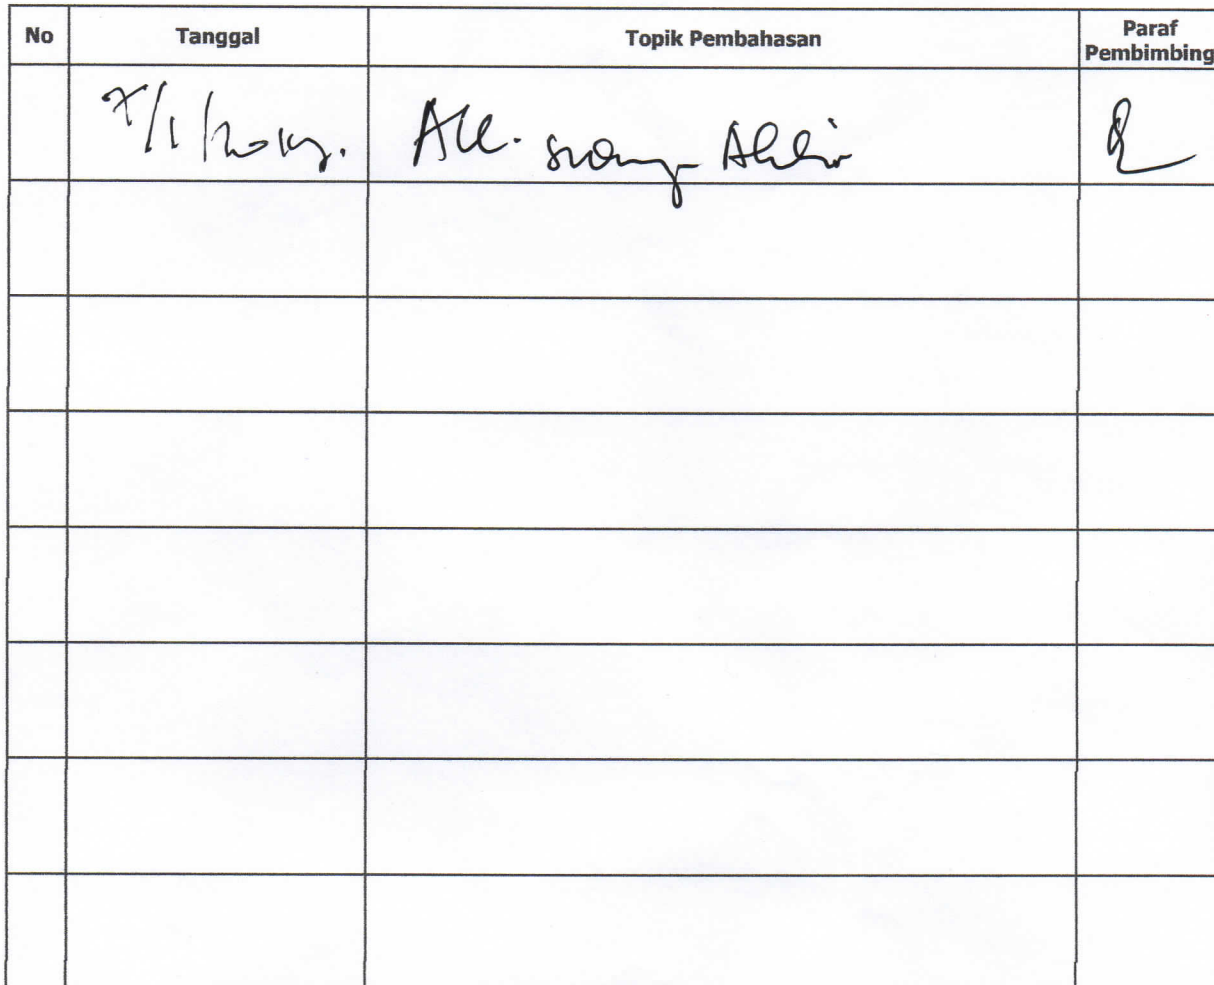 No Tanggal Topik Pembahasan Paraf Pembimbing
Acc. sidang Akhir